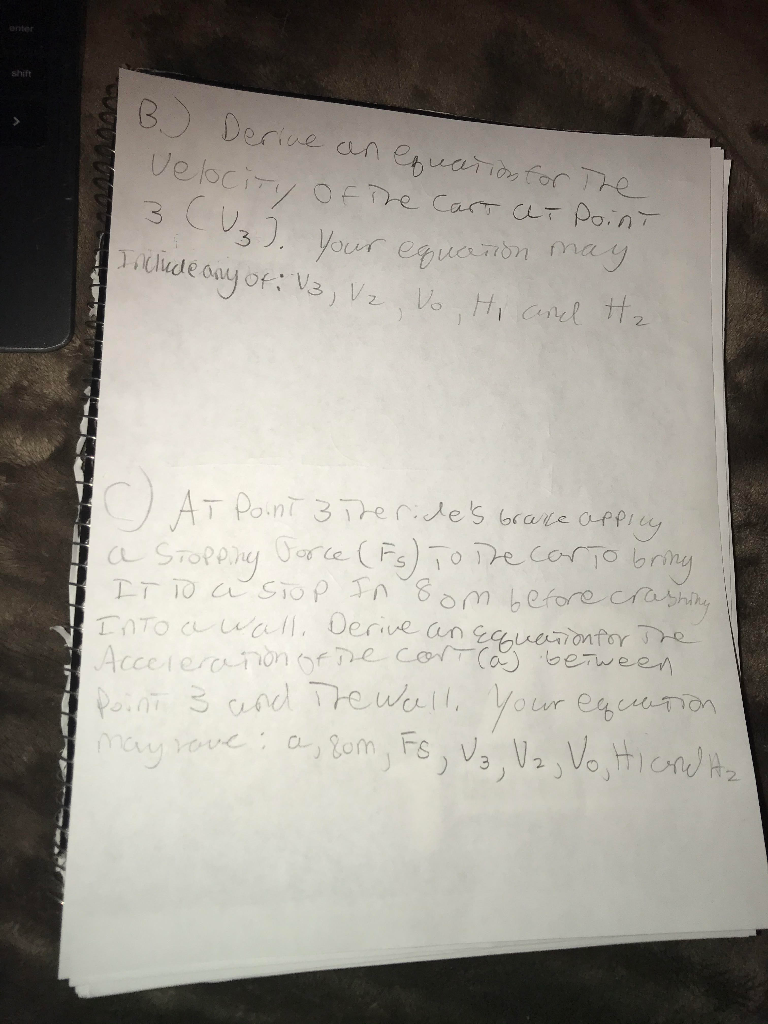 enter
shift
>
B.) Derive an equation for The
Velocity of The Cart at Point
3 (V3). Your equation may
Include any of: V3, V2, V0, H1 and H2
C) AT Point 3 The ride's brake apply
a Stopping Force (Fs) To The car To bring
IT To a STOP In 80m before crashing
InTo a wall. Derive an Equation for The
Acceleration of The car (a) between
Point 3 and The Wall. Your equation
may have: a, 80m, Fs, V3, V2, V0, H1 and H2